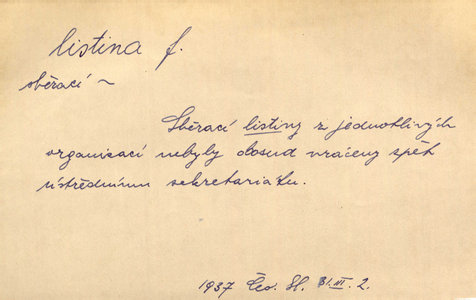 listina f.
sběrací ~
Sběrací listiny z jednotlivých
organisací nebyly dosud vráceny zpět
ústřednímu sekretariátu.
1937 Čes. Sl. 31.III. 2.